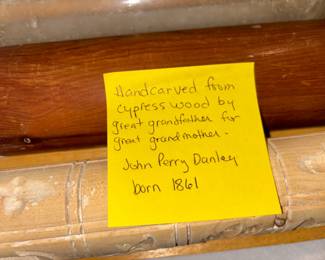 Handcarved from
cypress wood by
great grandfather for
great grandmother.
John Perry Danley
born 1861